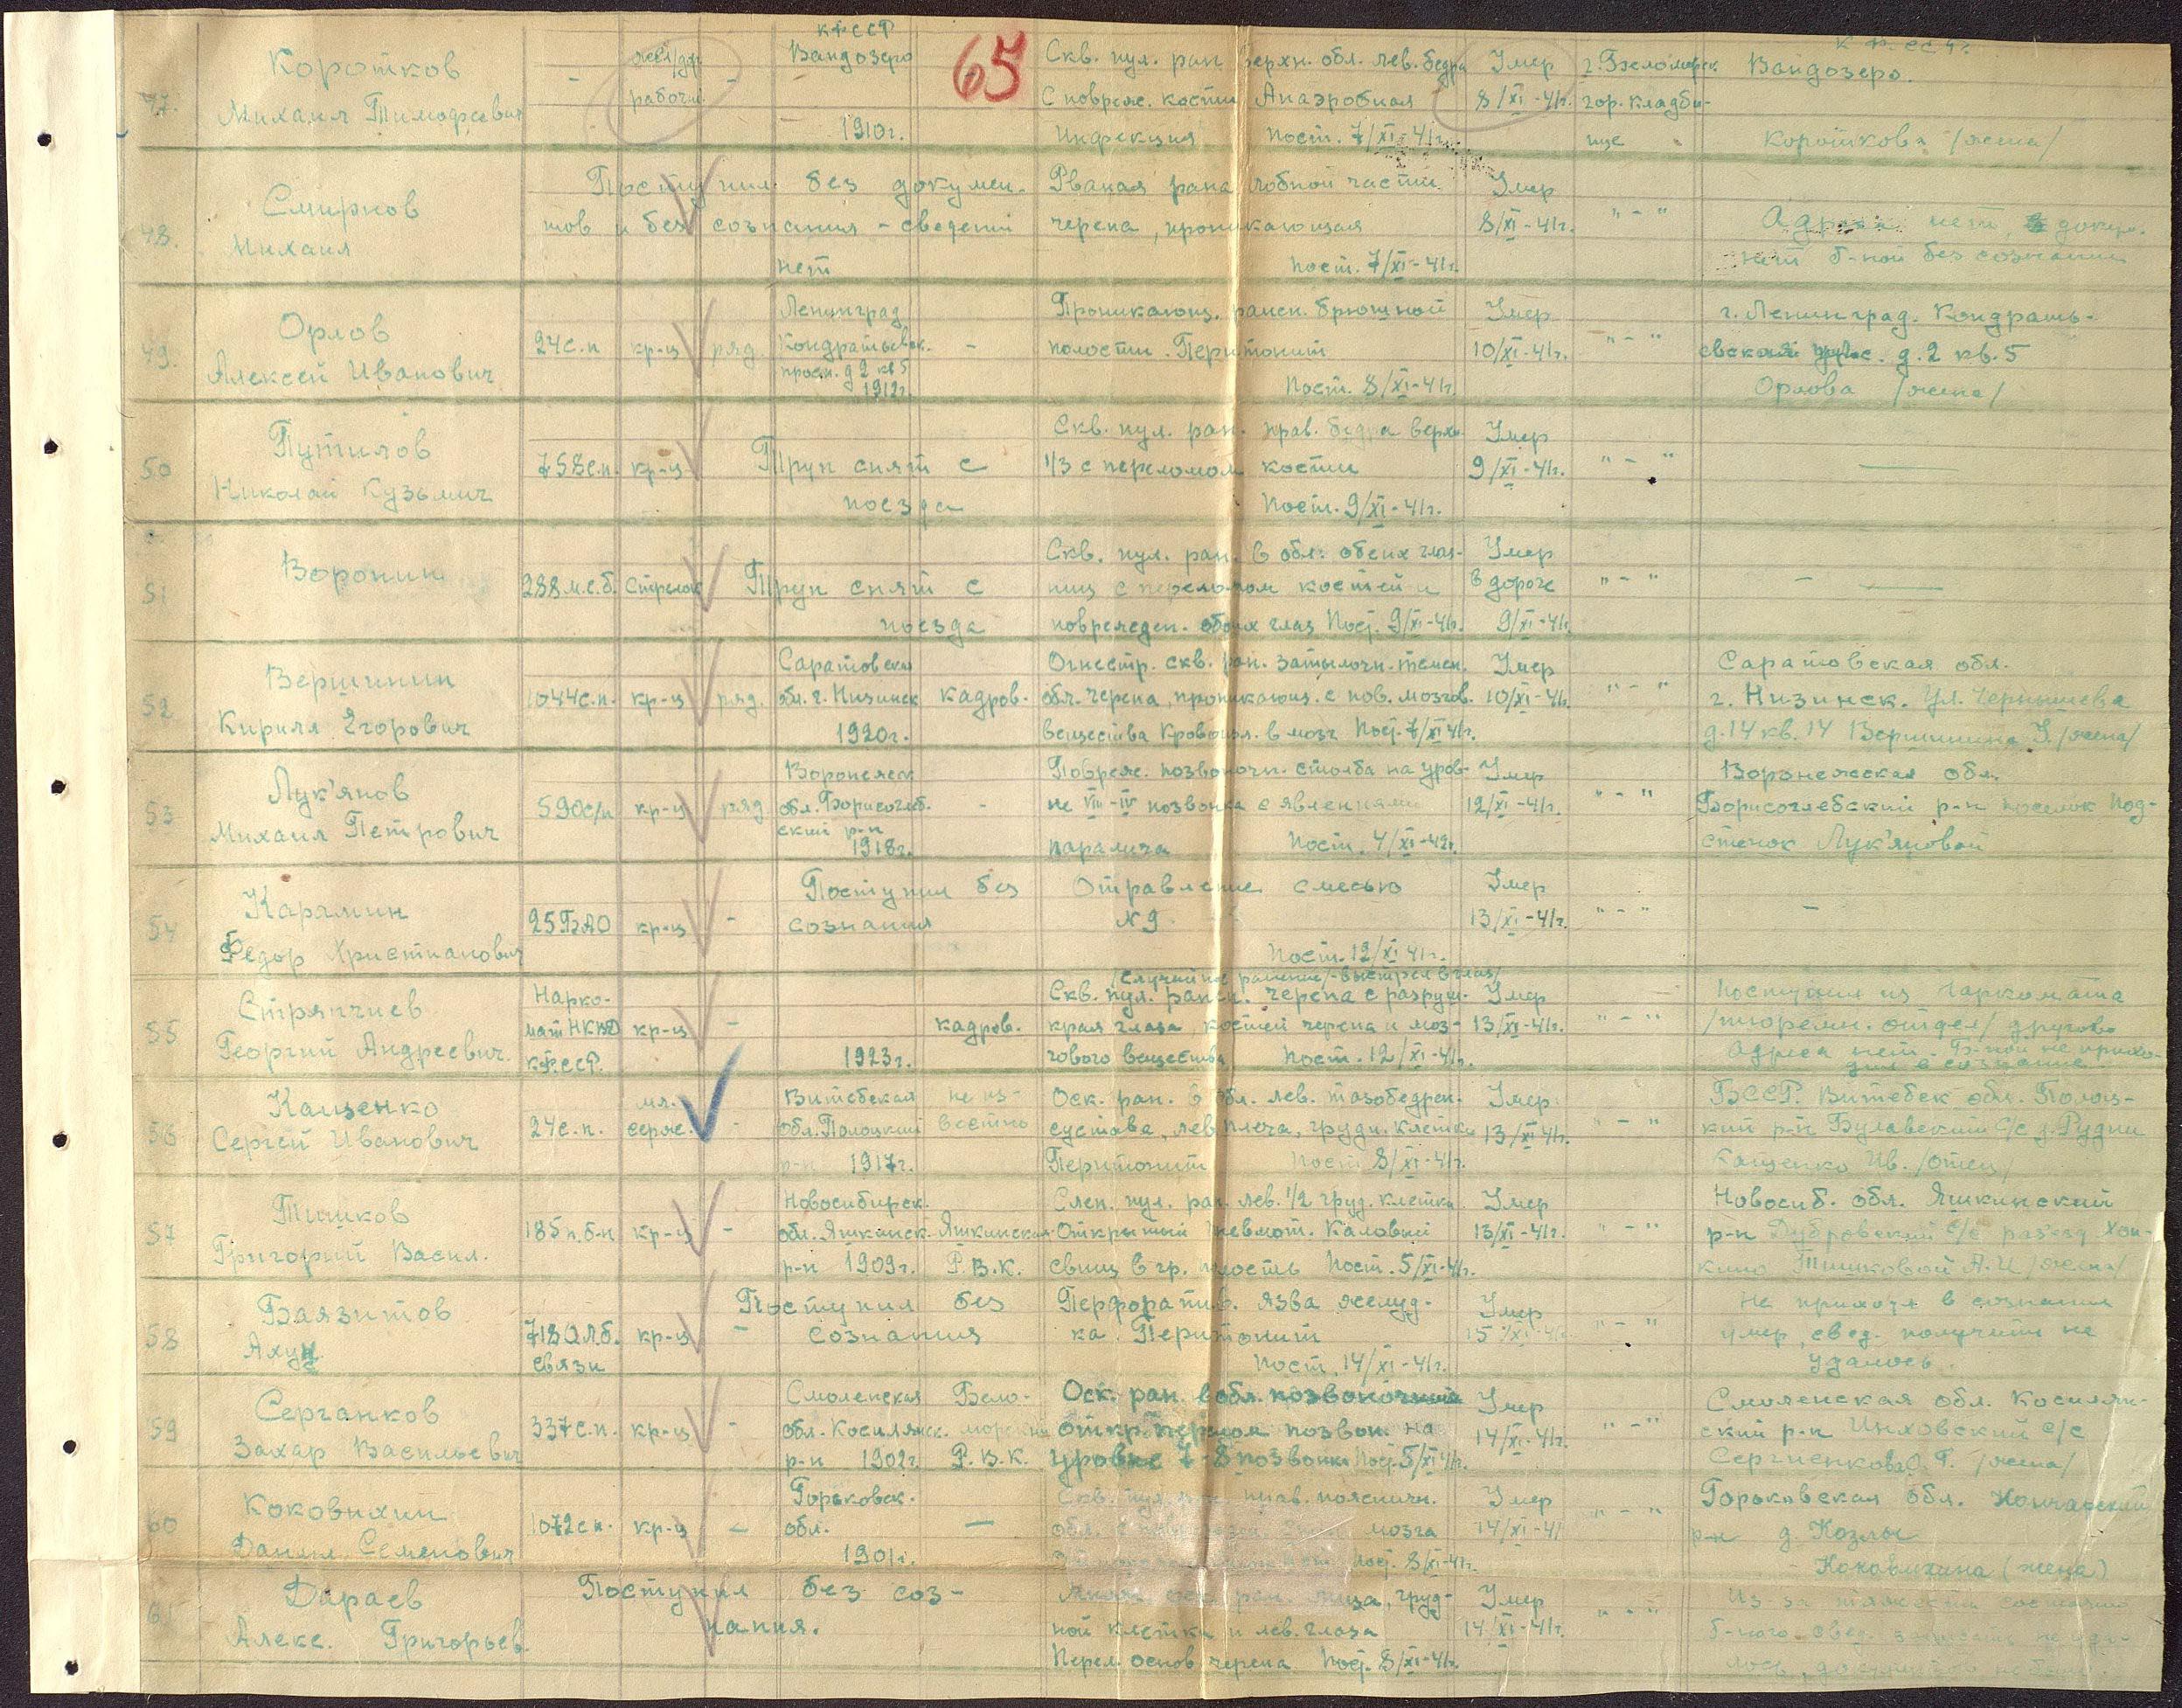 65
47. Коротков
Михаил Тимофеевич
- жел/дор. -
рабочий
КФССР
Вандозеро
1910г.
Скв. пул. ран. верхн. обл. лев. бедра
С повреж. кости Анаэробная
Инфекция Пост. 7/XI-41г.
Умер
8/XI-41г.
г. Беломорск
гор. кладби-
ще
К Ф. ССР.
Вандозеро.
Короткова /жена/
48. Смирнов
Михаил
Поступил без докумен-
тов и без сознания - сведений
нет
Рваная рана лобной части
черепа, проникающая
Пост. 7/XI-41г.
Умер
8/XI-41г.
" - "
Адреса нет, докум.
нет б-ной без сознания
49. Орлов
Алексей Иванович
24с.п кр-ц ряд.
Ленинград
Кондратьевск. -
просп. д 2 кв 5
1912г.
Проникающ. ранен. брюшной
полости. Перитонит
Пост. 8/XI-41г.
Умер
10/XI-41г.
" - "
г. Ленинград. Кондрать-
евская д. 2 кв. 5
Орлова /жена/
50 Путилов
Николай Кузьмич
758с.п. кр-ц
Труп снят с
поезда
Скв. пул. ран. прав. бедра верхн
1/3 с переломом кости
Пост. 9/XI-41г.
Умер
9/XI-41г.
" - "
—
51 Воронин
288 м.с.б. Стрелок
Труп снят с
поезда
Скв. пул. ран. в обл. обеих глаз-
ниц с переломом костей и
поврежден. обоих глаз Пост. 9/XI-41г.
Умер
в дороге
9/XI-41г.
" - "
- —
52 Вершинин
Кирилл Егорович
1044с.п. кр-ц ряд.
Саратовская
обл. г. Низинск кадров.
1920г.
Огнестр. скв. ран. затылочн. темен.
обл. черепа, проникающ. с пов. мозгов.
вещества Кровоизл. в мозг Пост. 7/XI 41г.
Умер
10/XI-41г.
" - "
Саратовская обл.
г. Низинск. Ул. Чернышева
д. 14 кв. 14 Вершинина /жена/
53 Лук'янов
Михаил Петрович
590с/п кр-ц ряд
Воронежск
обл. Борисоглеб. -
ский р-н
1918г.
Повреж. позвоночн. столба на уров-
не VIII-IV позвонка с явлениями
паралича Пост. 4/XI-42г.
Умер
12/XI-41г.
" - "
Воронежская обл.
Борисоглебский р-н поселок Под-
стенок Лук'яновой
54 Карямин
Федор Христианович
25 БАО кр-ц -
Поступил без
сознания
Отравление смесью
№9.
Пост. 12/XI 41г.
Умер
13/XI-41г.
" - "
-
55 Стряпчиев
Георгий Андреевич.
Нарко-
мат НКВД кр-ц - кадров.
КФССР. 1923г.
/Случайное ранение/-выстрел в глаз/
Скв. пул. ранен. черепа с разруш.
края глаза, костей черепа и моз-
гового вещества Пост. 12/XI-41г.
Умер
13/XI-41г.
" - "
Поступил из Наркомата
/тюремн. отдел/ другово
Адреса нет. Б-ной не прихо-
дил в сознание
56 Кащенко
Сергей Иванович
24с.п.
мл.
серж. -
Витебская не из-
обл. Полоцкий вестно
р-н 1917г.
Оск. ран. в обл. лев. тазобедрен.
сустава, лев плеча, грудн. клетки
Перитонит Пост 8/XI-41г.
Умер
13/XI 41г.
" - "
БССР. Витебск обл. Полоц-
кий р-н Булавский С/с д. Рудни
Кащенко Ив. /отец/
57 Тишков
Григорий Васил.
185 п. б-н кр-ц -
Новосибирск.
обл. Яшкинск. Яшкинский
р-н 1909г. Р.В.К.
Слеп. пул. ран. лев. 1/2 груд. клетки
Открытый пневмот. Каловый
свищ в гр. полость Пост. 5/XI-41г.
Умер
13/XI-41г.
" - "
Новосиб. обл. Яшкинский
р-н Дубровский С/с раз'езд Хоп-
кино Тишковой А.И. /жена/
58 Баязитов
Ахун
718 Отл.б. кр-ц -
связи
Поступил без
сознания
Перфоратив. язва желуд-
ка. Перитонит
Пост. 14/XI-41г.
Умер
15/XI-41г
" - "
Не приходя в сознания
умер, свед. получить не
удалось.
59 Серганков
Захар Васильевич
337с.п. кр-ц -
Смоленская Бело-
обл. Косплянск. морский
р-н 1902г. Р.В.К.
Оск. ран. в обл. позвоночника
откр перелом позвон. на
уровне 7-8 позвонк Пост. 5/XI 41г.
Умер
14/XI-41г.
" - "
Смоленская обл. Косплян-
ский р-н Инховский с/с
Сергиенкова О. Г. /жена/
60 Коковихин
Данил Семенович
1072с п. кр-ц -
Горьковск.
обл. —
1901г.
Скв. пул. ран. прав. пояснич.
обл. мозга
Пост. 8/XI-41г.
Умер
14/XI-41
" - "
Горьковская обл.
р-н д. Козлы
Коковихина (жена)
61 Дараев
Алекс. Григорьев.
Поступил без соз-
нания.
ран. лица, груд-
ной клетки и лев. глаза
Перел. основ черепа Пост. 8/XI-41г.
Умер
14/XI-41г.
" - "
Из-за тяжелого состояния
б-ного свед.